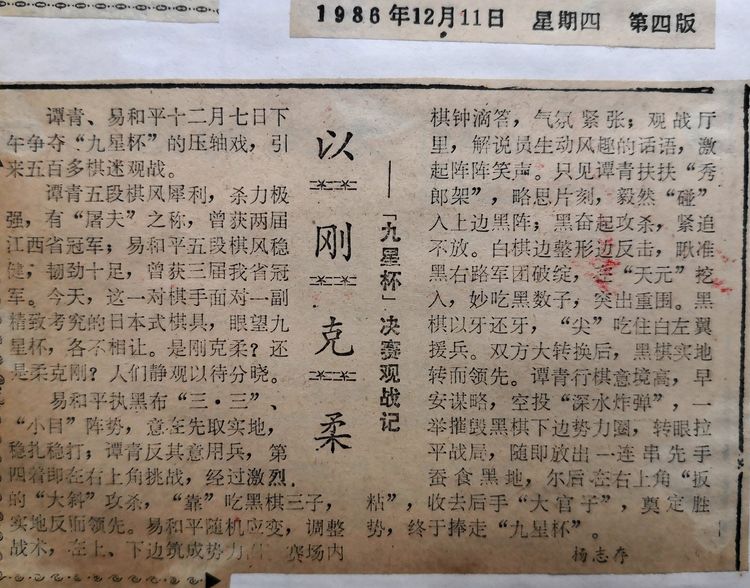 1986年12月11日 星期四 第四版
以刚克柔
——「九星杯」决赛观战记
谭青、易和平十二月七日下
午争夺“九星杯”的压轴戏，引
来五百多棋迷观战。
谭青五段棋风犀利，杀力极
强，有“屠夫”之称，曾获两届
江西省冠军；易和平五段棋风稳
健，韧劲十足，曾获三届我省冠
军。今天，这一对棋手面对一副
精致考究的日本式棋具，眼望九
星杯，各不相让。是刚克柔？还
是柔克刚？人们静观以待分晓。
易和平执黑布“三·三”、
“小目”阵势，意在先取实地，
稳扎稳打；谭青反其意用兵，第
四着即在右上角挑战，经过激烈
的“大斜”攻杀，“靠”吃黑棋三子，
实地反而领先。易和平随机应变，调整
战术，在上、下边筑成势力 赛场内
棋钟滴答，气氛紧张；观战厅
里，解说员生动风趣的话语，激
起阵阵笑声。只见谭青扶扶“秀
郎架”，略思片刻，毅然“碰”
入上边黑阵；黑奋起攻杀，紧追
不放。白棋边整形边反击，瞅准
黑右路军团破绽，在“天元”挖
入，妙吃黑数子，突出重围。黑
棋以牙还牙，“尖”吃住白左翼
援兵。双方大转换后，黑棋实地
转而领先。谭青行棋意境高，早
安谋略，空投“深水炸弹”，一
举摧毁黑棋下边势力圈，转眼拉
平战局，随即放出一连串先手
蚕食黑地，尔后在右上角“扳
粘”，收去后手“大官子”，奠定胜
势，终于捧走“九星杯”。
杨志存